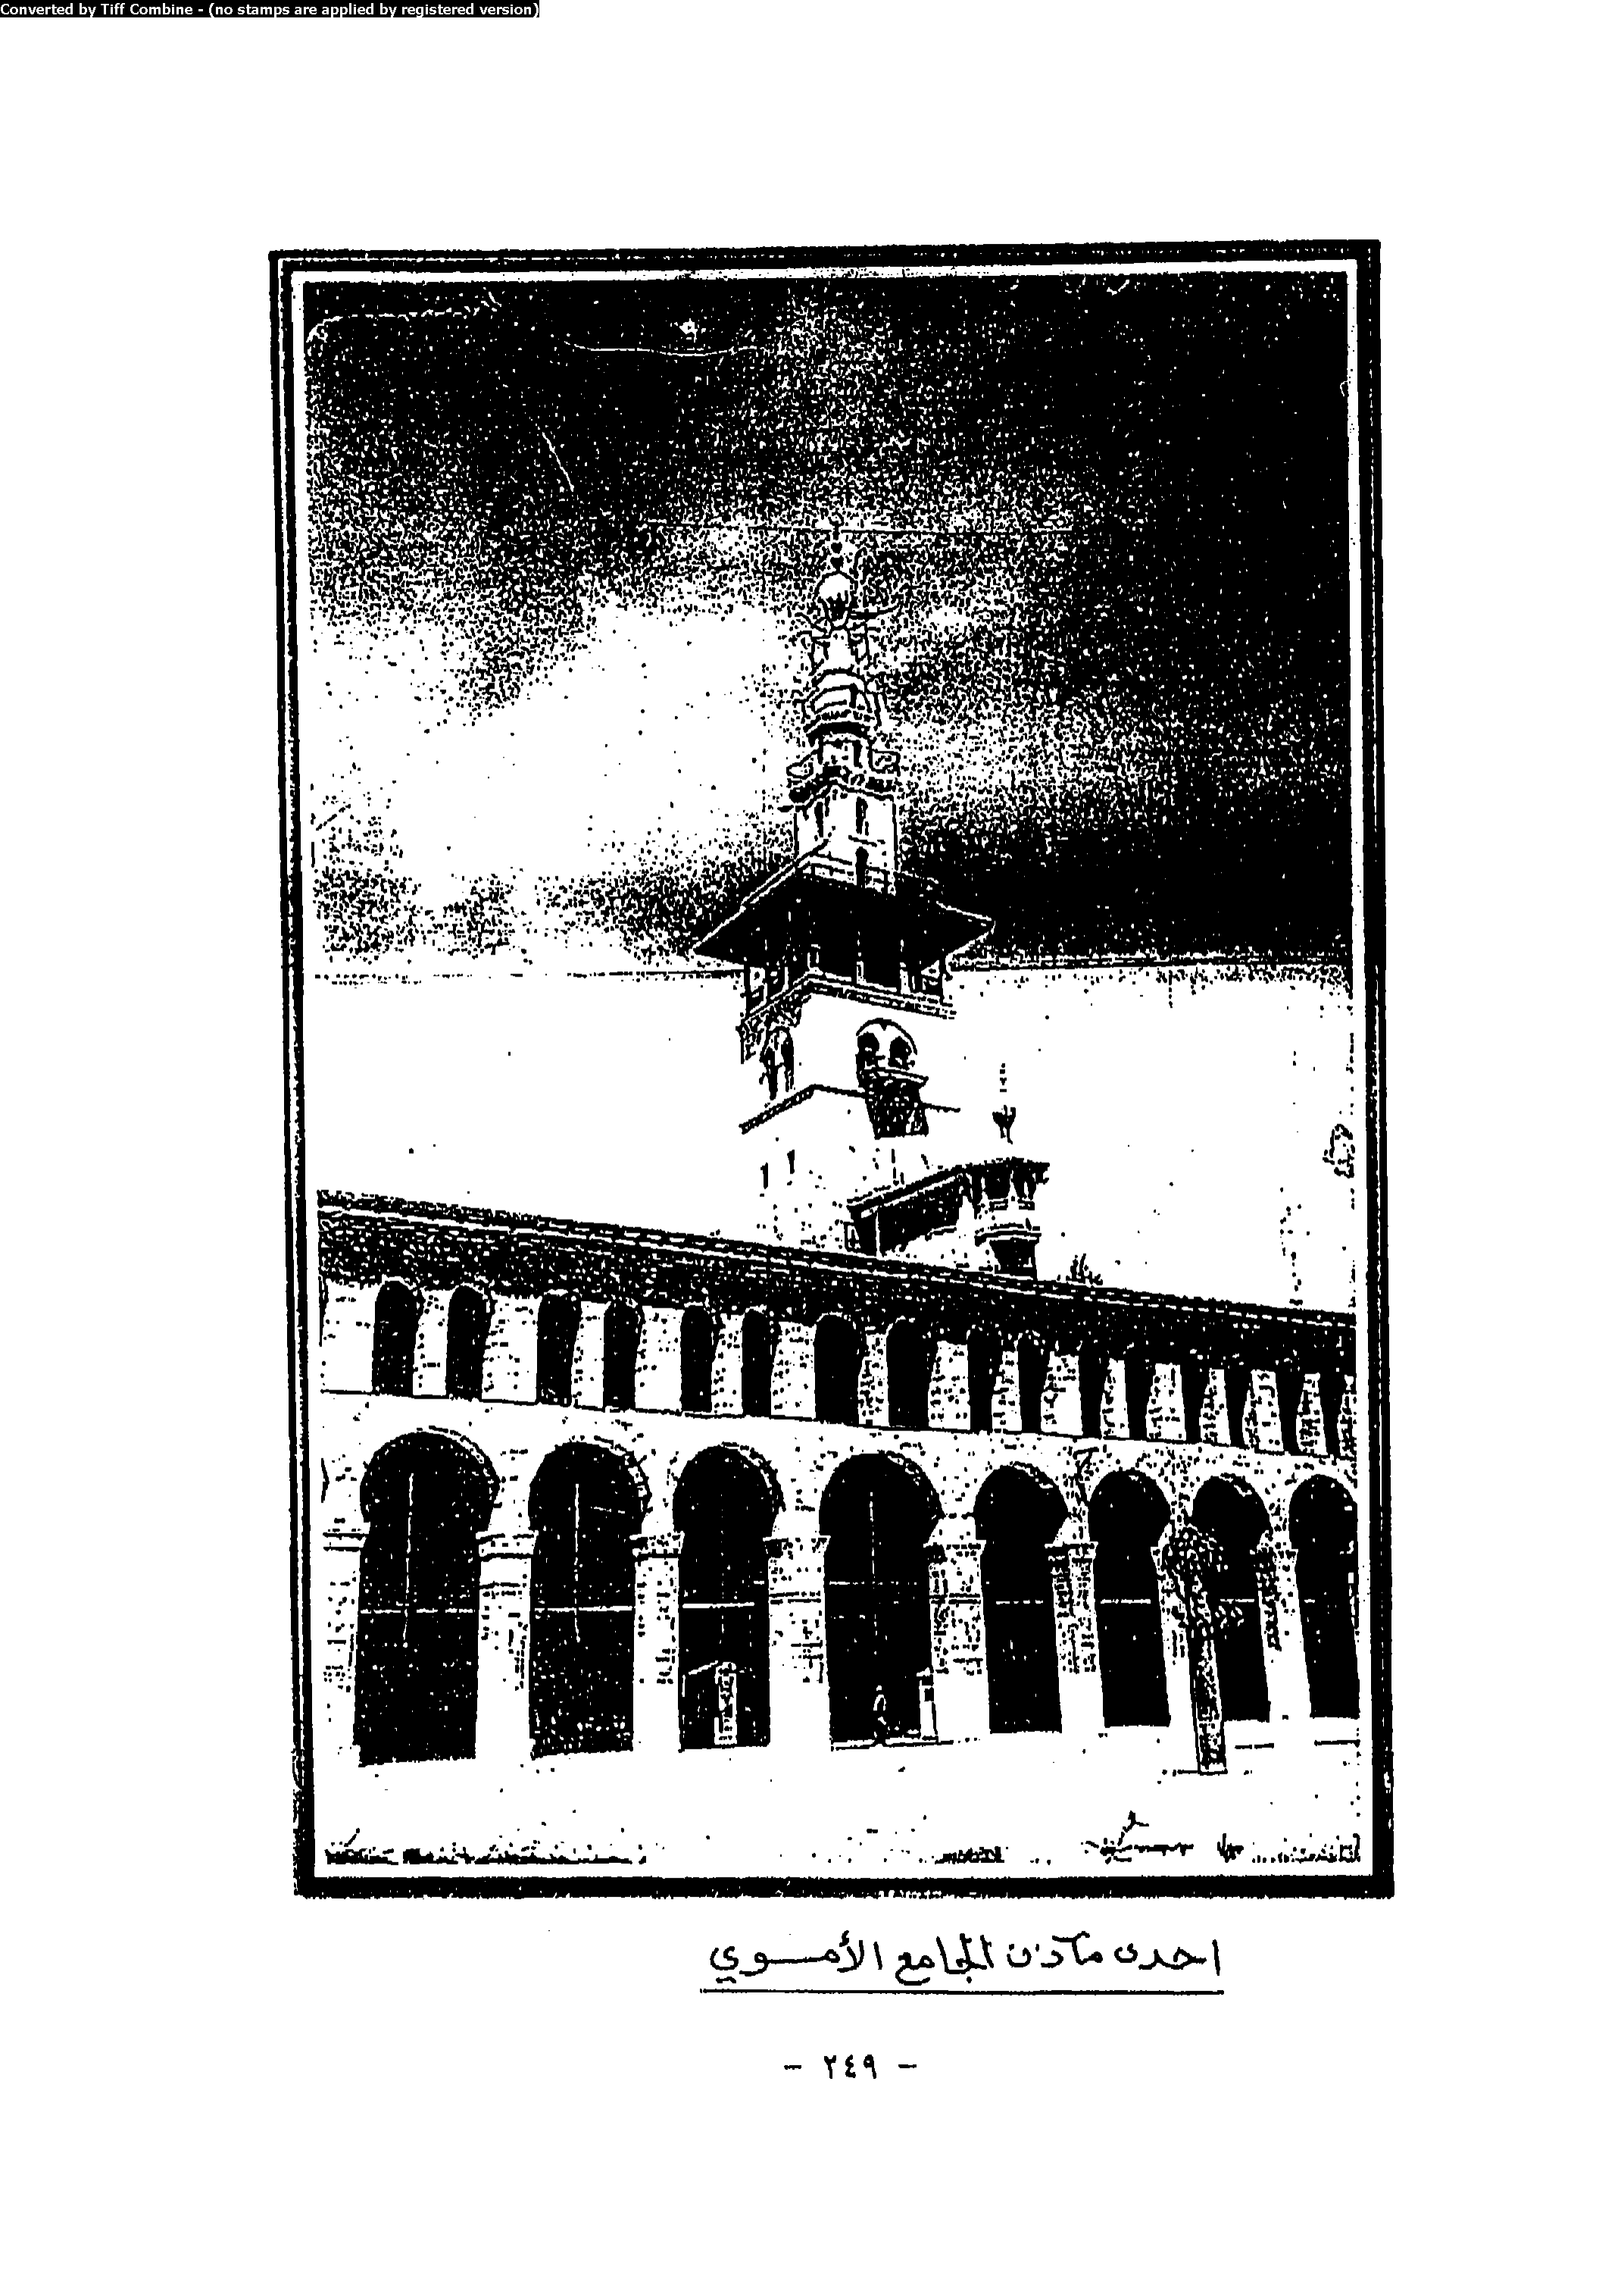 Converted by Tiff Combine - (no stamps are applied by registered version)
احدى مآذن الجامع الأمــوي
- ٢٤٩ -